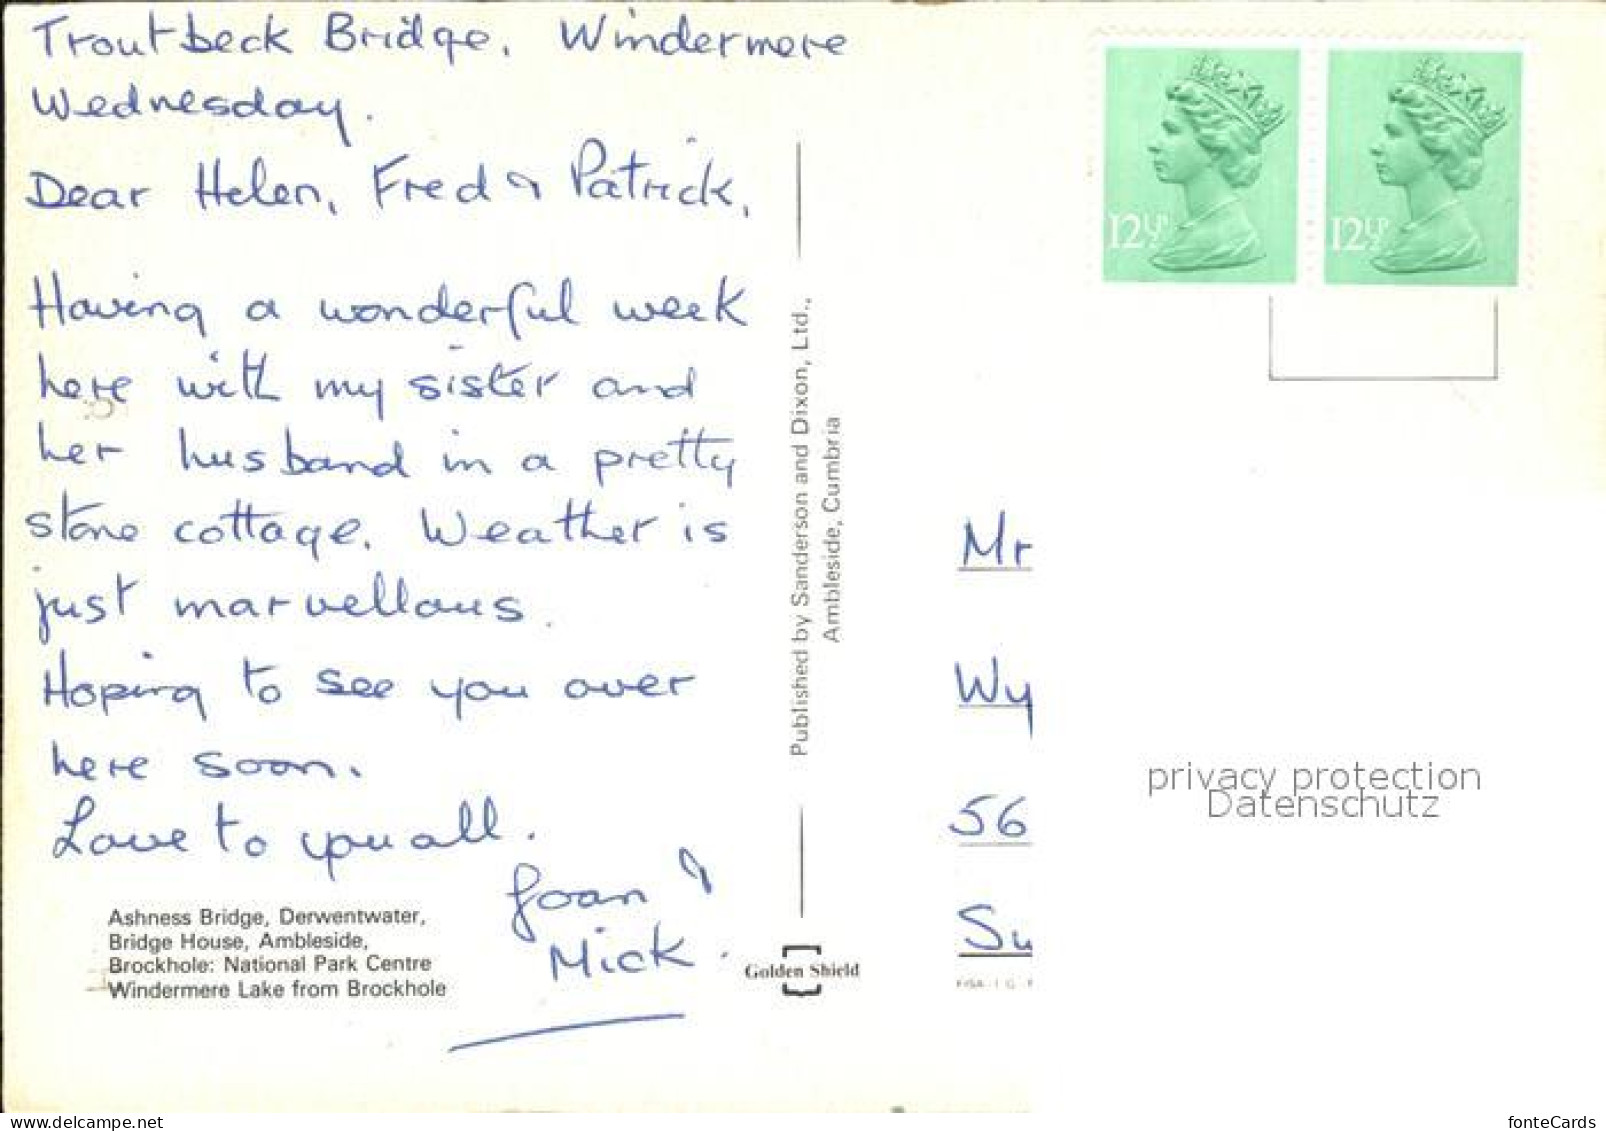 Troutbeck Bridge, Windermere
Wednesday.
Dear Helen, Fred & Patrick,
Having a wonderful week
here with my sister and
her husband in a pretty
stone cottage. Weather is
just marvellous.
Hoping to see you over
here soon.
Love to you all.
Joan &
Mick.
Ashness Bridge, Derwentwater,
Bridge House, Ambleside,
Brockhole: National Park Centre
Windermere Lake from Brockhole
Published by Sanderson and Dixon, Ltd.,
Ambleside, Cumbria
Golden Shield
12½P
12½P
Mr
Wy
56
Su
privacy protection
Datenschutz
www.delcampe.net
fonteCards